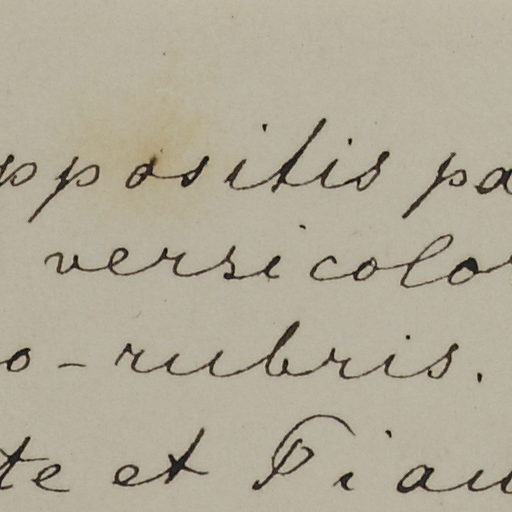 ppositis pa
versicolor
o-rubris.
te et Fiau